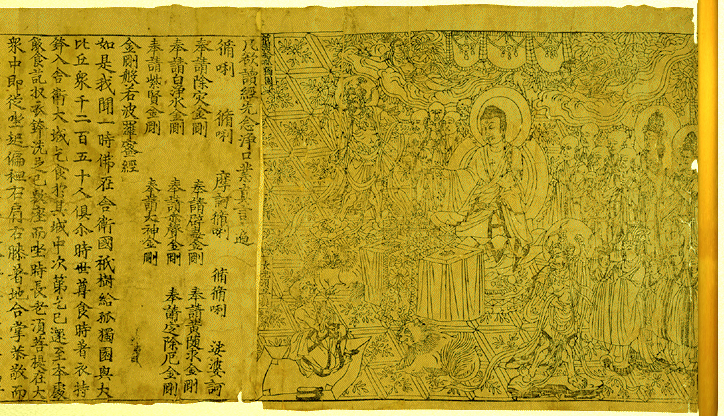 凡欲讀經先念淨口業真言一遍
脩唎 脩唎 摩訶脩唎 脩脩唎 娑婆訶
奉請除災金剛 奉請辟毒金剛 奉請黃隨求金剛
奉請白淨水金剛 奉請赤聲金剛 奉請定除厄金剛
奉請紫賢金剛 奉請大神金剛
金剛般若波羅蜜經
如是我聞一時佛在舍衛國祇樹給孤獨園與大
比丘眾千二百五十人俱尒時世尊食時著衣持
鉢入舍衛大城乞食於其城中次第乞已還至本處
飯食訖收衣鉢洗足已敷座而坐時長老須菩提在大
眾中即從坐起偏袒右肩右膝著地合掌恭敬而